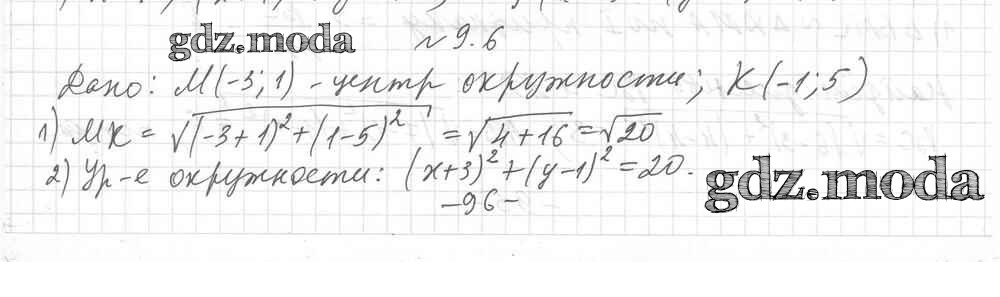 gdz.moda
№ 9.6
Дано: M(-3; 1) - центр окружности; K(-1; 5)
1) MK = √((-3+1)² + (1-5)²) = √(4+16) = √20
2) Ур-е окружности: (x+3)² + (y-1)² = 20.
gdz.moda
-96-